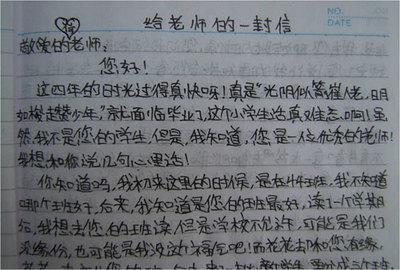 NO.
DATE
给老师的一封信
敬爱的老师:
您好!
这四年的时光过得真快呀!真是“光阴似箭催人老,日月
如梭趱少年。”就面临毕业了,这个小学生活真难忘啊!虽
然,我不是您的学生,但是,我知道,您是一位优秀的老师!
我想和你说几句心里话!
你知道吗,我初来这里的时候,是在4年班,我不知道
哪个班好,后来,我知道是您的班最好,读了一个学期
后,我想去您的班读,但是学校不允许,可能是我们
没缘份,也可能是我没这个福气吧!而老老却和您有缘,